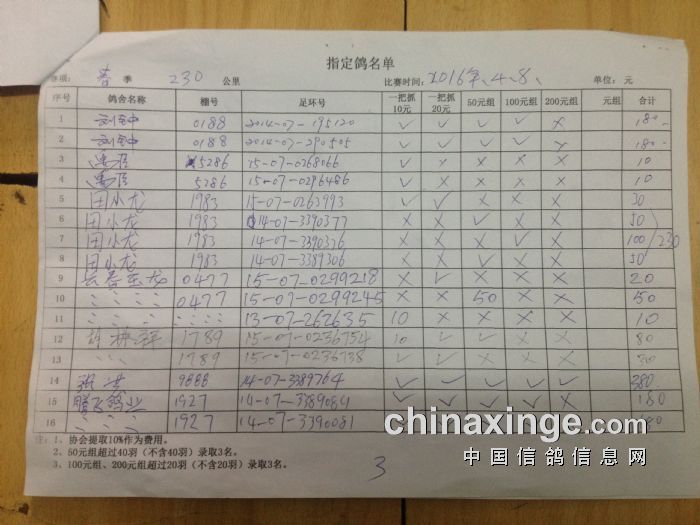 指定鸽名单
赛项: 春 季 230 公里 比赛时间: 2016年.4.8、 单位: 元
序号 鸽舍名称 棚号 足环号 一把抓10元 一把抓20元 50元组 100元组 200元组 元组 合计
1 刘钟 0188 2014-07-195120 ✓ ✓ ✓ ✓ × 180
2 刘钟 0188 2014-07-290505 ✓ ✓ ✓ ✓ × 180
3 5286 15-07-0268066 ✓ × × × × 10
4 5286 15-07-0296486 ✓ × × × × 10
5 田小龙 1983 15-07-0263993 ✓ ✓ × × × 30
6 田小龙 1983 14-07-3390377 × × ✓ × × 50
7 田小龙 1983 14-07-3390376 × × × ✓ × 100 230
8 田小龙 1983 14-07-3389306 × × ✓ × × 50
9 长春金龙 0477 15-07-0299218 × ✓ × × × 20
10 、、、、 0477 15-07-0299245 × × 50 × × 50
11 13-07-262635 10 × × × × 10
12 1789 15-07-0236754 10 ✓ ✓ × × 80
13 1789 15-07-0236738 ✓ ✓ × × × 30
14 张洪 9888 14-07-3389764 ✓ ✓ ✓ ✓ ✓ 380
15 腾飞鸽业 1927 14-07-3389084 ✓ ✓ ✓ ✓ × 180
16 1927 14-07-3390081
注: 1、协会提取10%作为费用。
2、50元组超过40羽(不含40羽)录取3名。
3、100元组、200元组超过20羽(不含20羽)录取3名。
3
chinaxinge.com
中国信鸽信息网